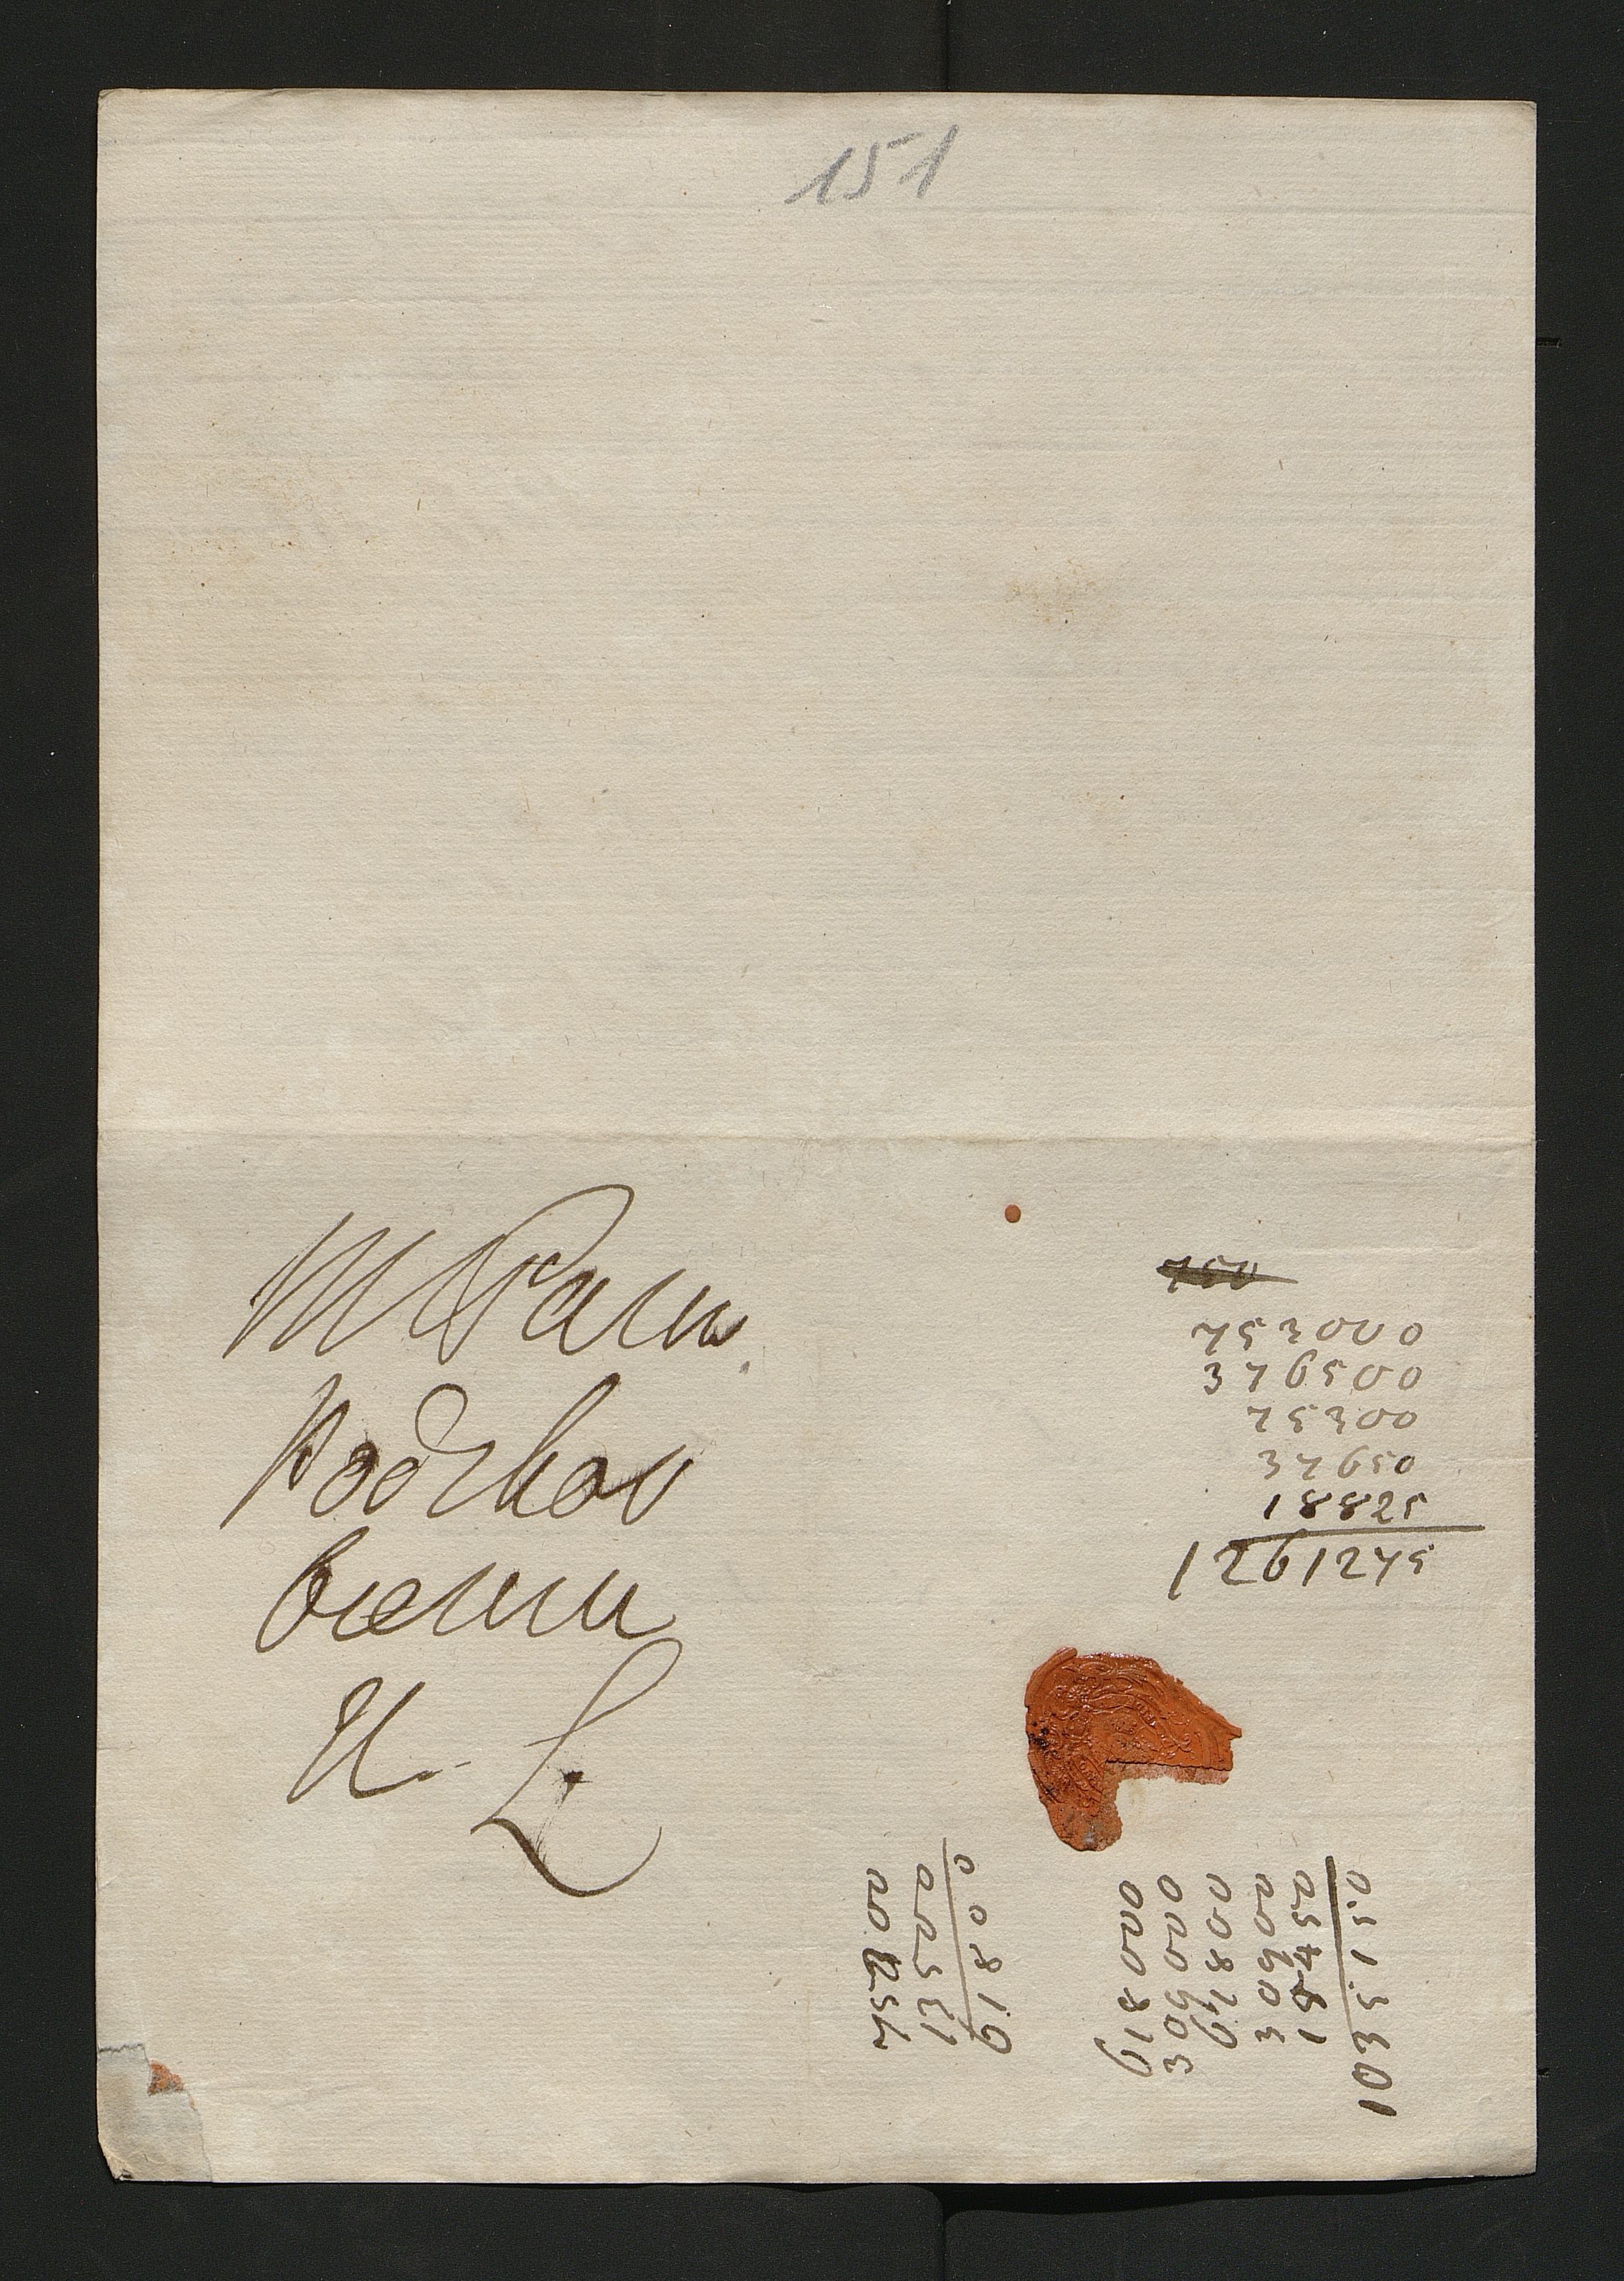 151
MWPanu
Podskar
biemu
W. L
750
753000
376500
75300
37650
18825
1261275
75300
13500
61800
618000
309000
61800
30900
15450
1035150